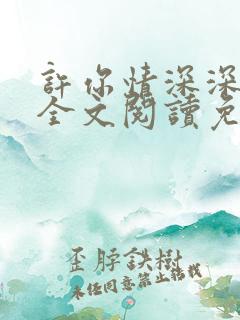 許你情深深
全文閱讀免
歪脖鉄樹
未經同意禁止轉載